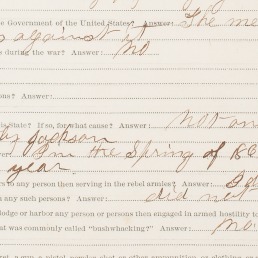 he Government of the United States? Answer: The me
s against it
s during the war? Answer: no
ons? Answer:
is State? If so, for what cause? Answer: not on
Jackson
Answer: In the Spring of 186
year
rs to any person then serving in the rebel armies? Answer: I d
n any such persons? Answer: did not
lodge or harbor any person or persons then engaged in armed hostility to
what was commonly called "bushwhacking?" Answer: no